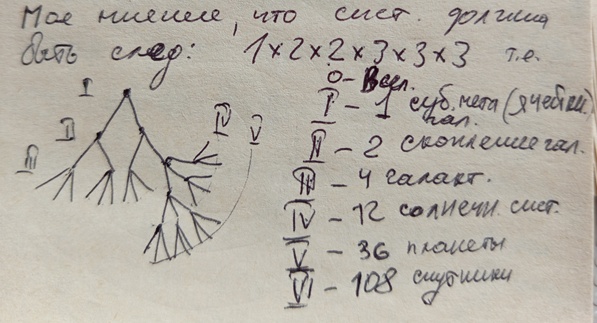 Мое мнение, что сист. должна
быть след: 1×2×2×3×3×3 т.е.
0 - Всел.
I
I - 1 суб.мета (ячейки)
гал.
II
IV
V
II - 2 скопление гал.
III
III - 4 галакт.
IV - 12 солнечн. сист.
V - 36 планеты
VI - 108 спутники